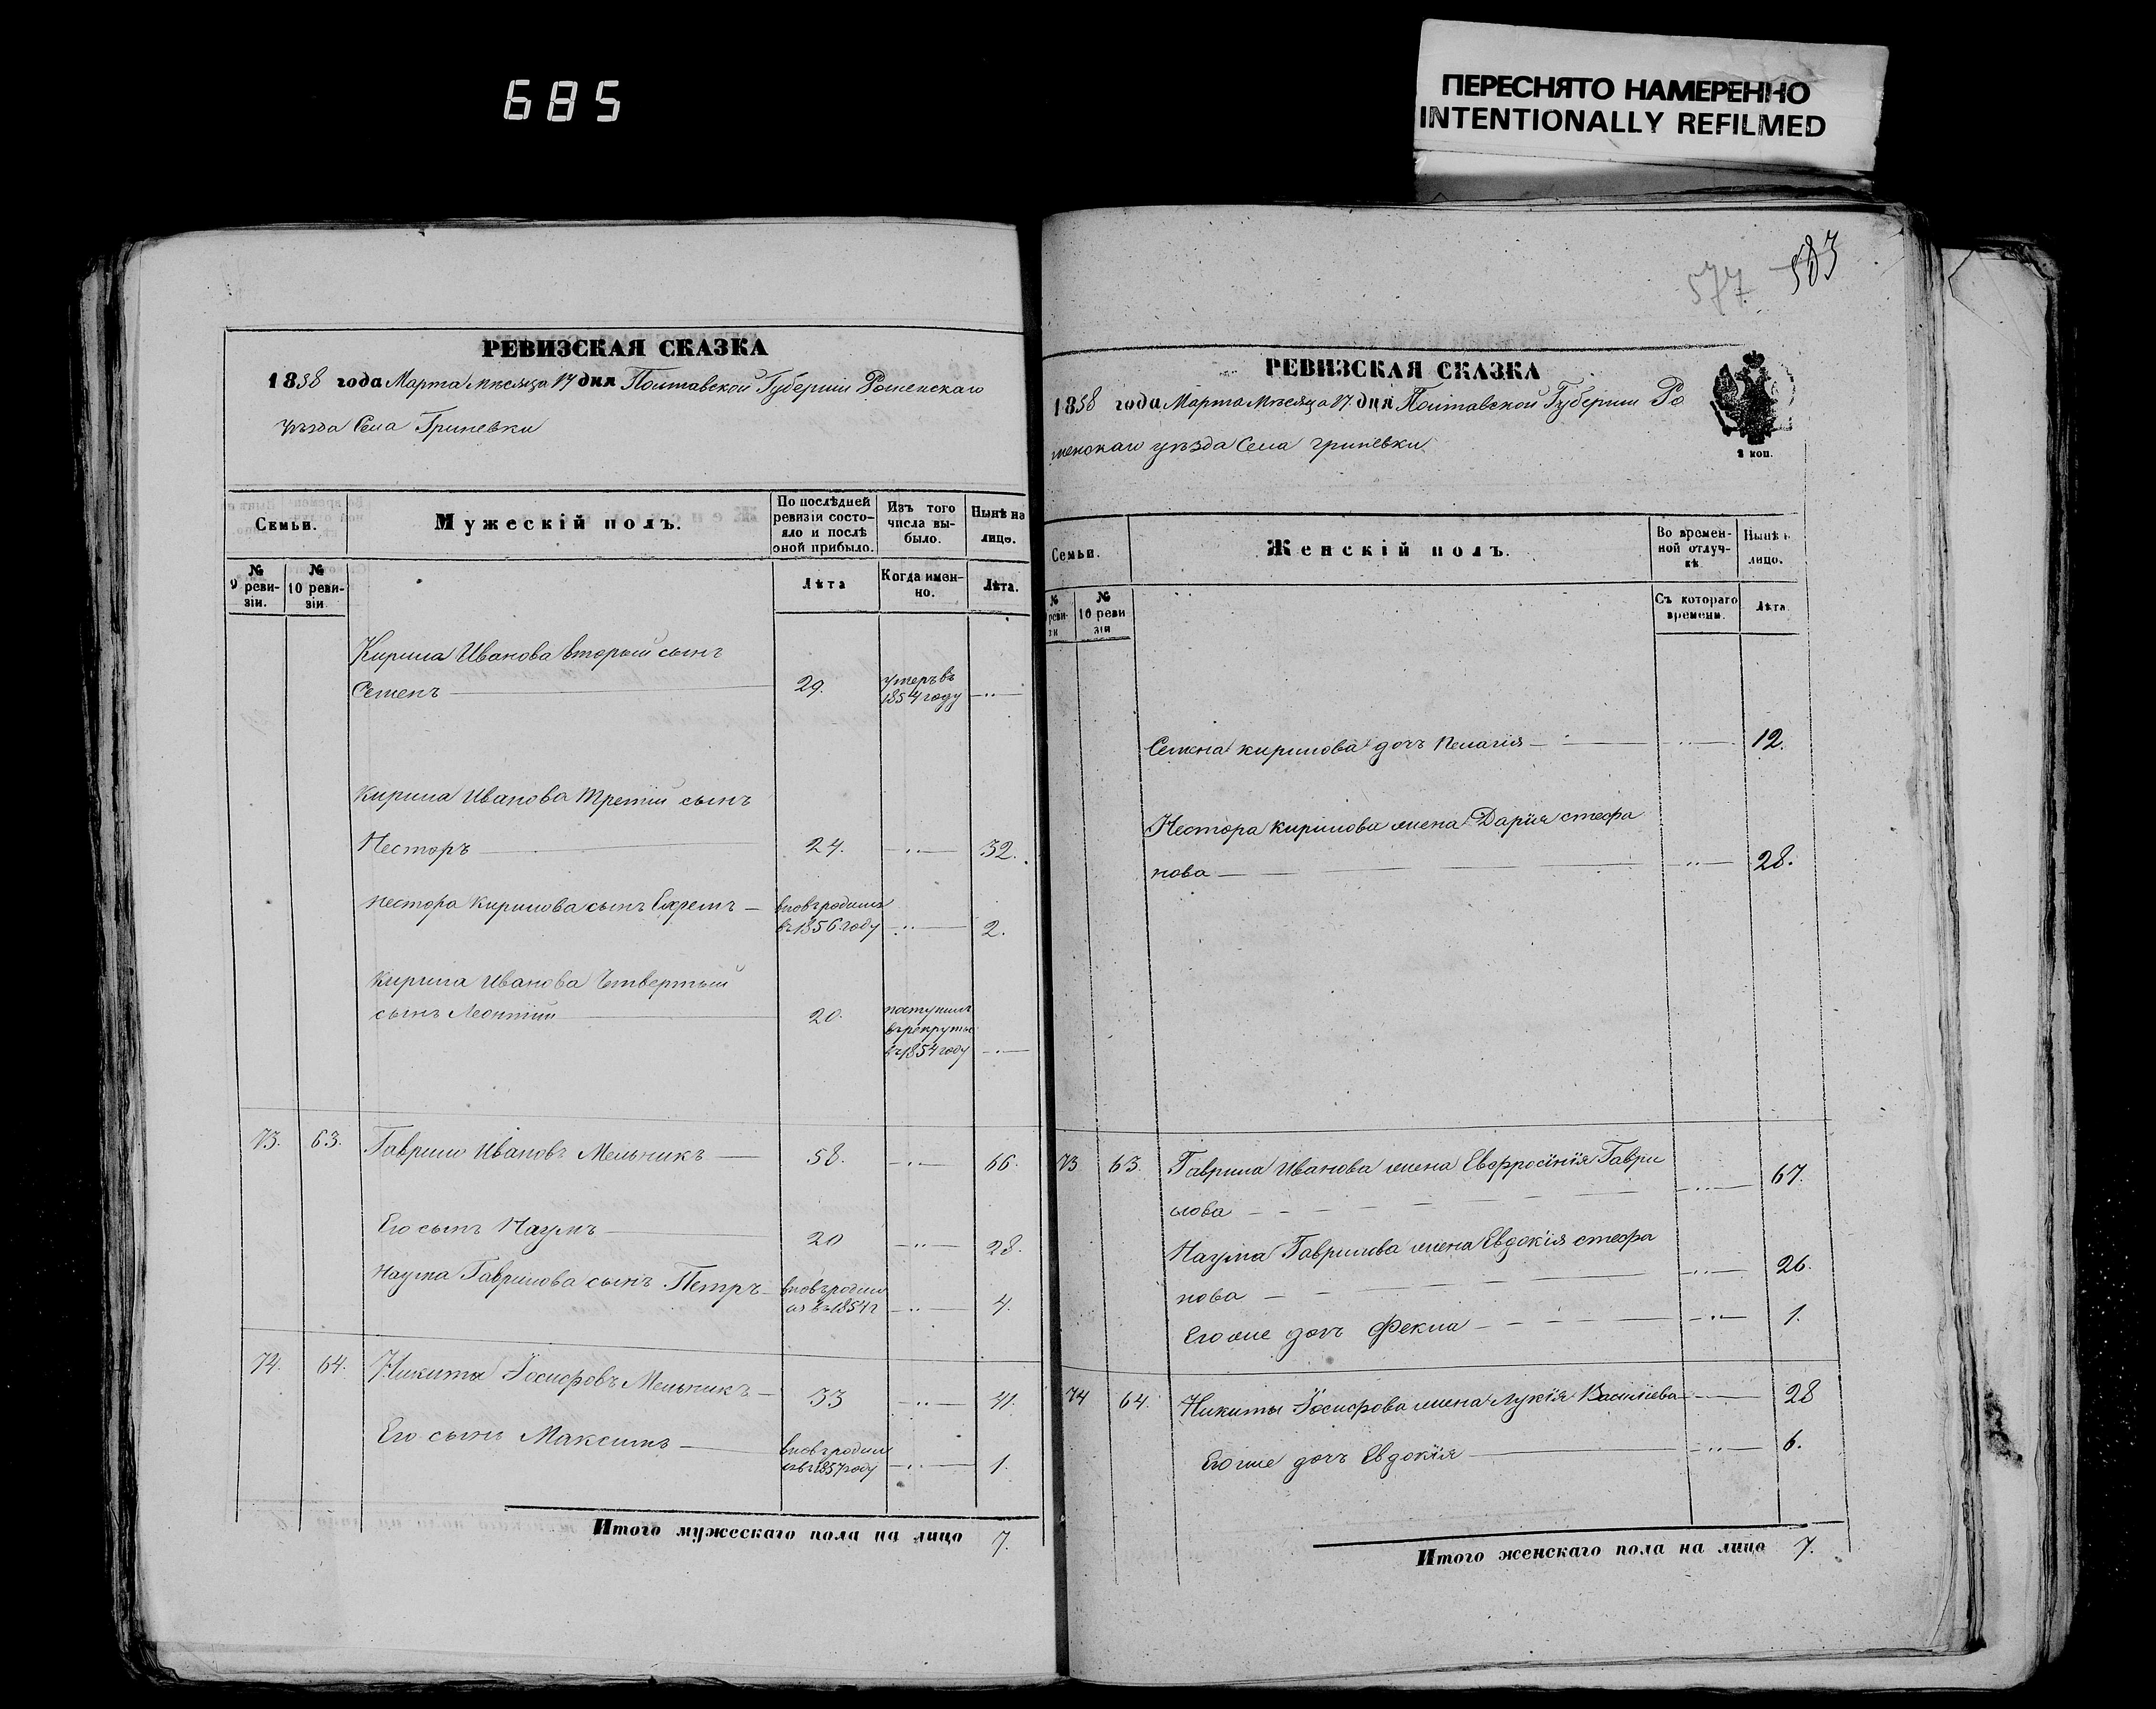 685
ПЕРЕСНЯТО НАМЕРЕННО
INTENTIONALLY REFILMED
РЕВИЗСКАЯ СКАЗКА
1858 года Марта мѣсяца 17 дня Полтавской Губерніи Роменскаго
уѣзда Села Гриневки
Семьи.
Мужескій полъ.
По послѣдней
ревизіи состо-
яло и послѣ
оной прибыло.
Изъ того
числа вы-
было.
Нынѣ на
лицо.
№
9 реви-
зіи.
№
10 реви-
зіи
Лѣта
Когда имен-
но.
Лѣта.
Кирила Иванова вторый сынъ
Семенъ 29. умеръ въ
1854 году
Кирила Иванова третій сынъ
Несторъ 24. 32.
Нестора Кирилова сынъ Ехремъ вновь родилъ
въ 1856 году 2.
Кирила Иванова Четвертый
сынъ Леонтій 20. поступилъ
въ рекруты
въ 1854 году
73. 63. Гаврило Ивановъ Мельникъ 58. 66.
Его сынъ Наумъ 20 28.
Наума Гаврилова сынъ Петръ вновь родил
ся въ 1854 г 4.
74. 64. Никита Іосифовъ Мельникъ 33 41.
Его сынъ Максимъ вновь родил
ся въ 1857 году 1.
Итого мужескаго пола на лицо 7.
577 583
РЕВИЗСКАЯ СКАЗКА
1858 года Марта Мѣсяца 17 дня Полтавской Губерніи Ро
менскаго уѣзда Села гриневки
2 коп.
Семьи.
Женскій полъ.
Во времен-
ной отлуч-
кѣ
Нынѣ н
лицо.
№
реви-
зи
№
10 реви
зіи
Съ котораго
времени.
Лѣта
Семена кирилова дочъ Пелагія 12.
Нестора кирилова жена Дарія стефа
нова 28.
73 63. Гаврила Иванова жена Евфросінія Гаври
лова 67.
Наума Гаврилова жена Евдокія стефа
нова 26.
Его же дочъ Фекла 1.
74 64. Никиты Іосифова жена Лукія Василіева 28
Его же дочъ Евдокія 6.
Итого женскаго пола на лицо 7.